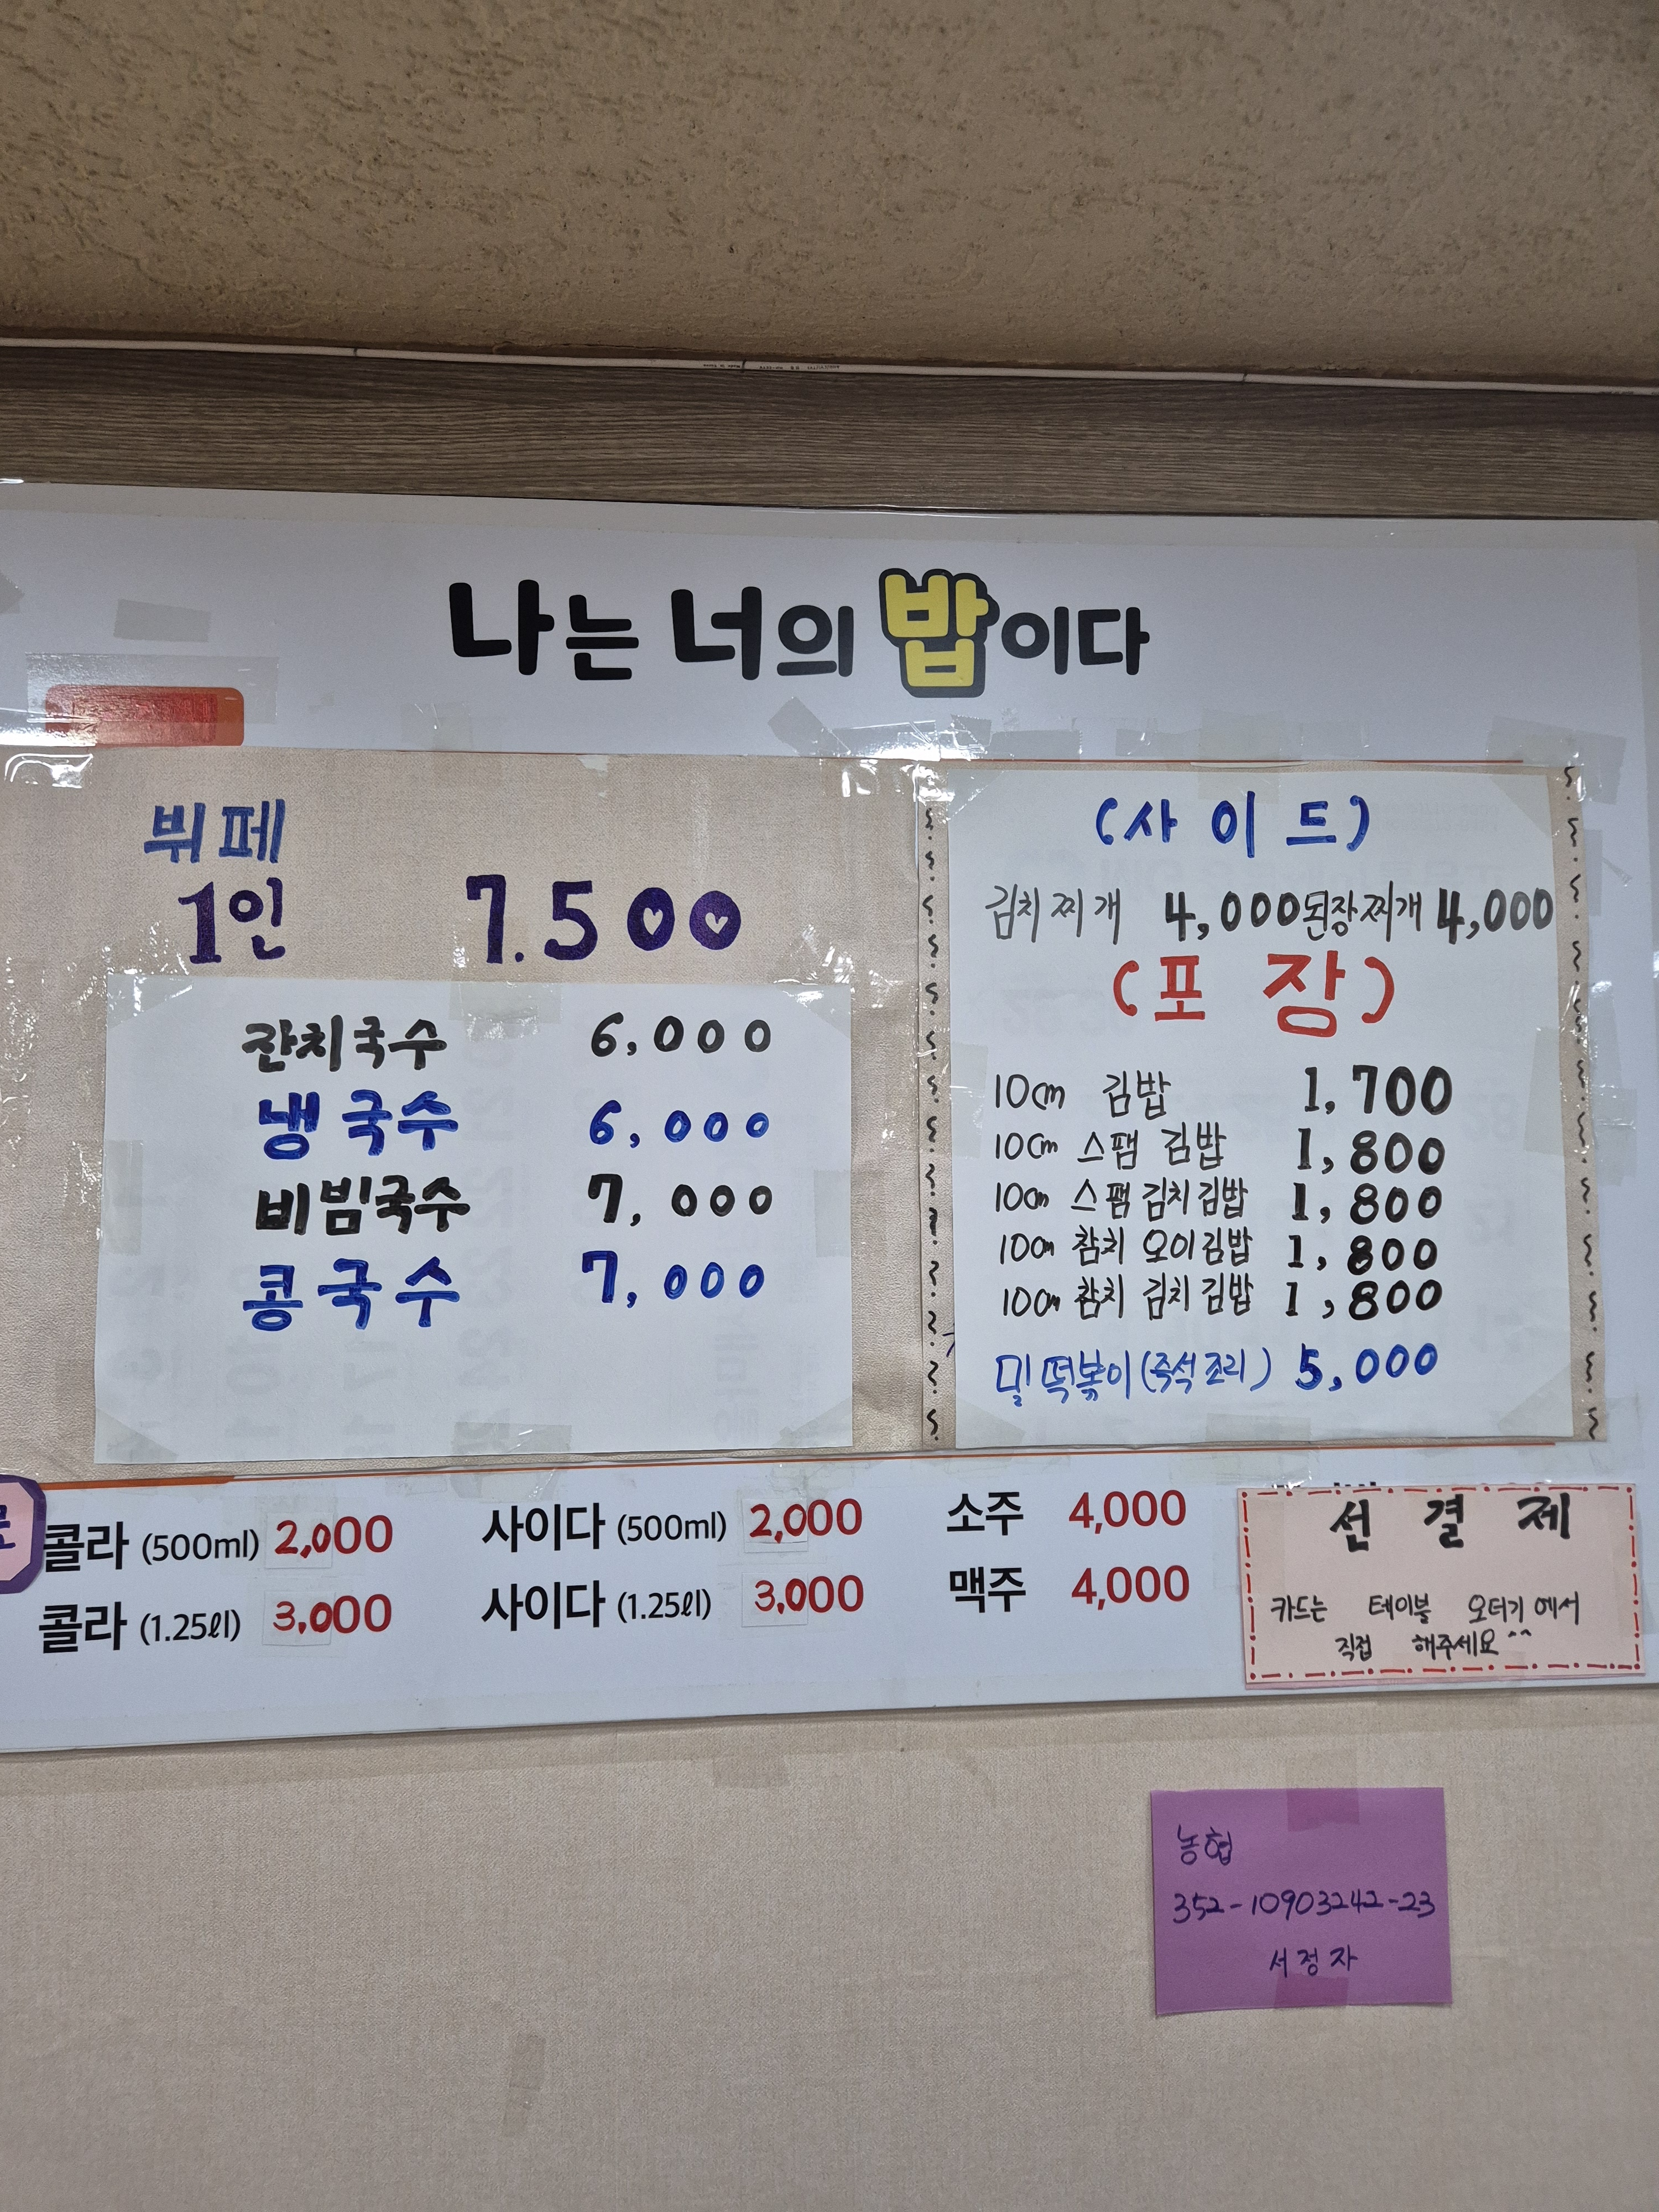 나는 너의 밥이다
뷔페
1인 7.500
잔치국수 6,000
냉국수 6,000
비빔국수 7,000
콩국수 7,000
(사이드)
김치찌개 4,000 된장찌개 4,000
(포장)
10cm 김밥 1,700
10cm 스팸 김밥 1,800
10cm 스팸 김치김밥 1,800
10cm 참치 오이김밥 1,800
10cm 참치 김치김밥 1,800
밀떡볶이(즉석조리) 5,000
콜라 (500ml) 2,000 사이다 (500ml) 2,000 소주 4,000
콜라 (1.25ℓl) 3,000 사이다 (1.25ℓl) 3,000 맥주 4,000
선결제
카드는 테이블 오더기에서
직접 해주세요^^
농협
352-10903242-23
서정자